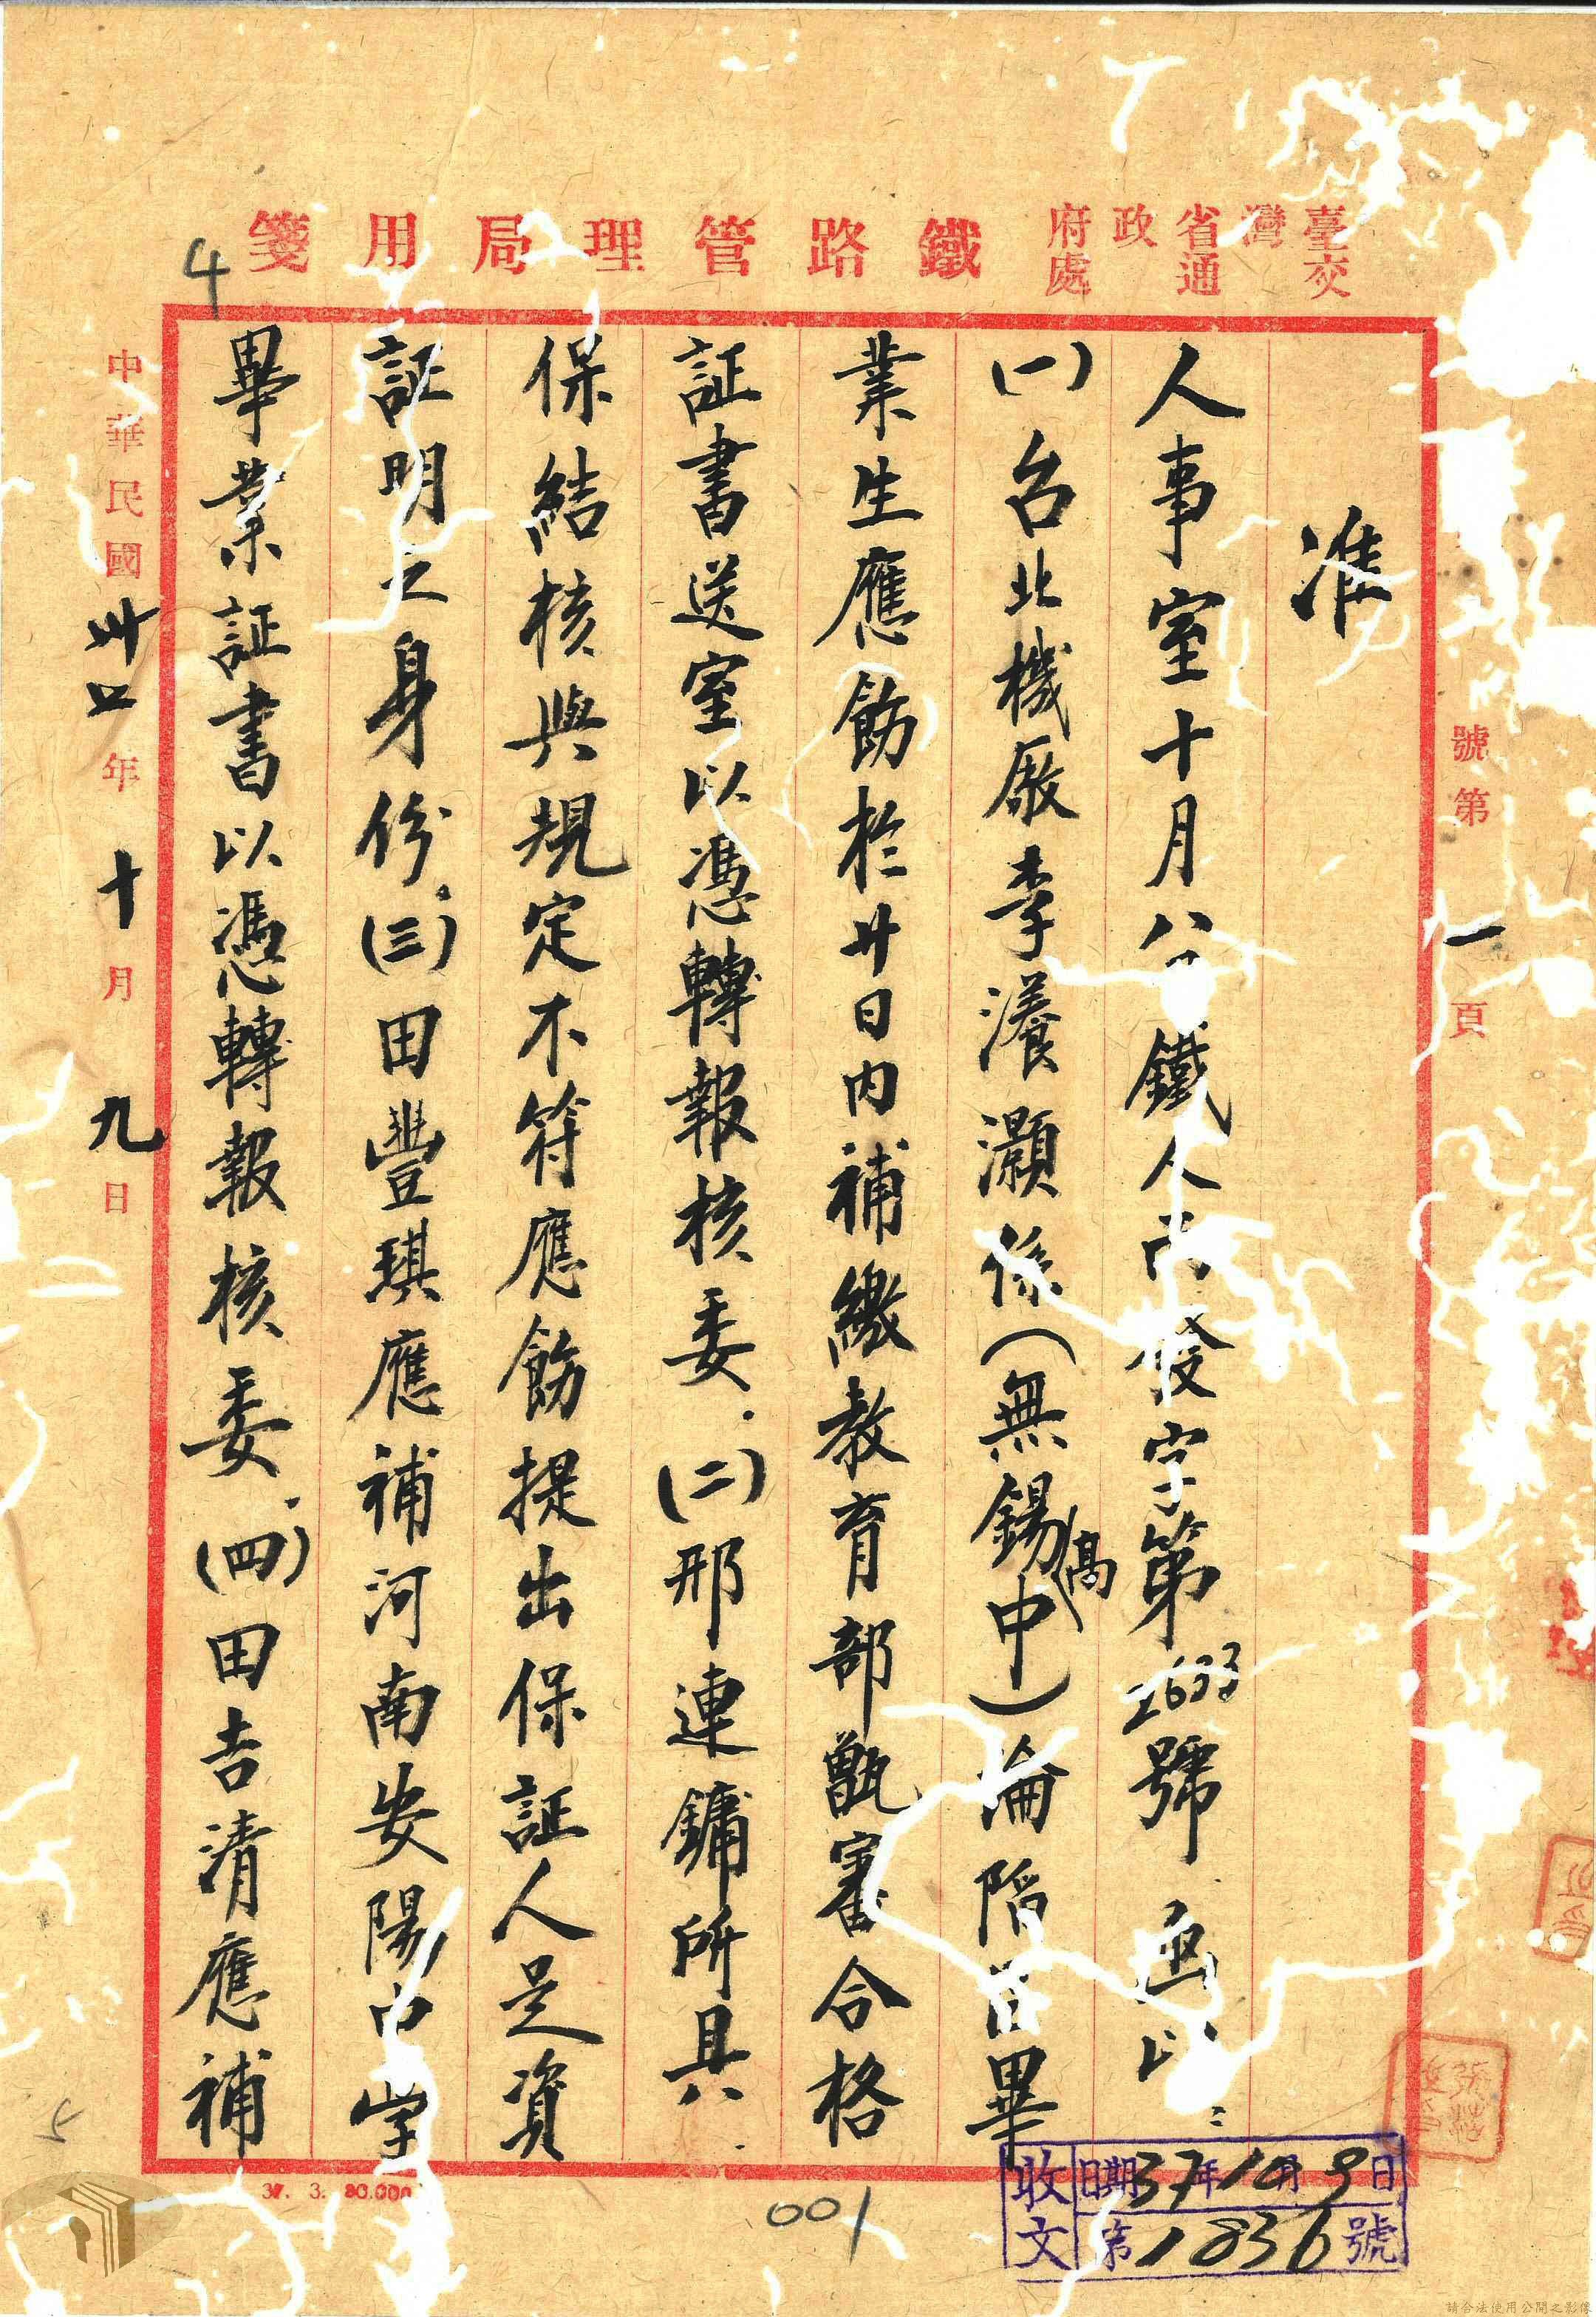 臺灣省政府
交通處
鐵路管理局用箋
號第一頁
准
人事室十月八日鐵人丙發字第2633號函以：
(一)台北機廠李濙灝係(無錫高中)淪陷區畢
業生應飭於廿日內補繳教育部甄審合格
証書送室以憑轉報核委．(二)邢連鏞所具
保結核與規定不符應飭提出保証人足資
証明之身份．(三)田豐琪應補河南安陽中學
畢業証書以憑轉報核委．(四)田吉清應補
中華民國卅七年十月九日
4
5
37. 3. 80.000
001
收文 日期37年10月9日
第1836號
請合法使用公開之影像